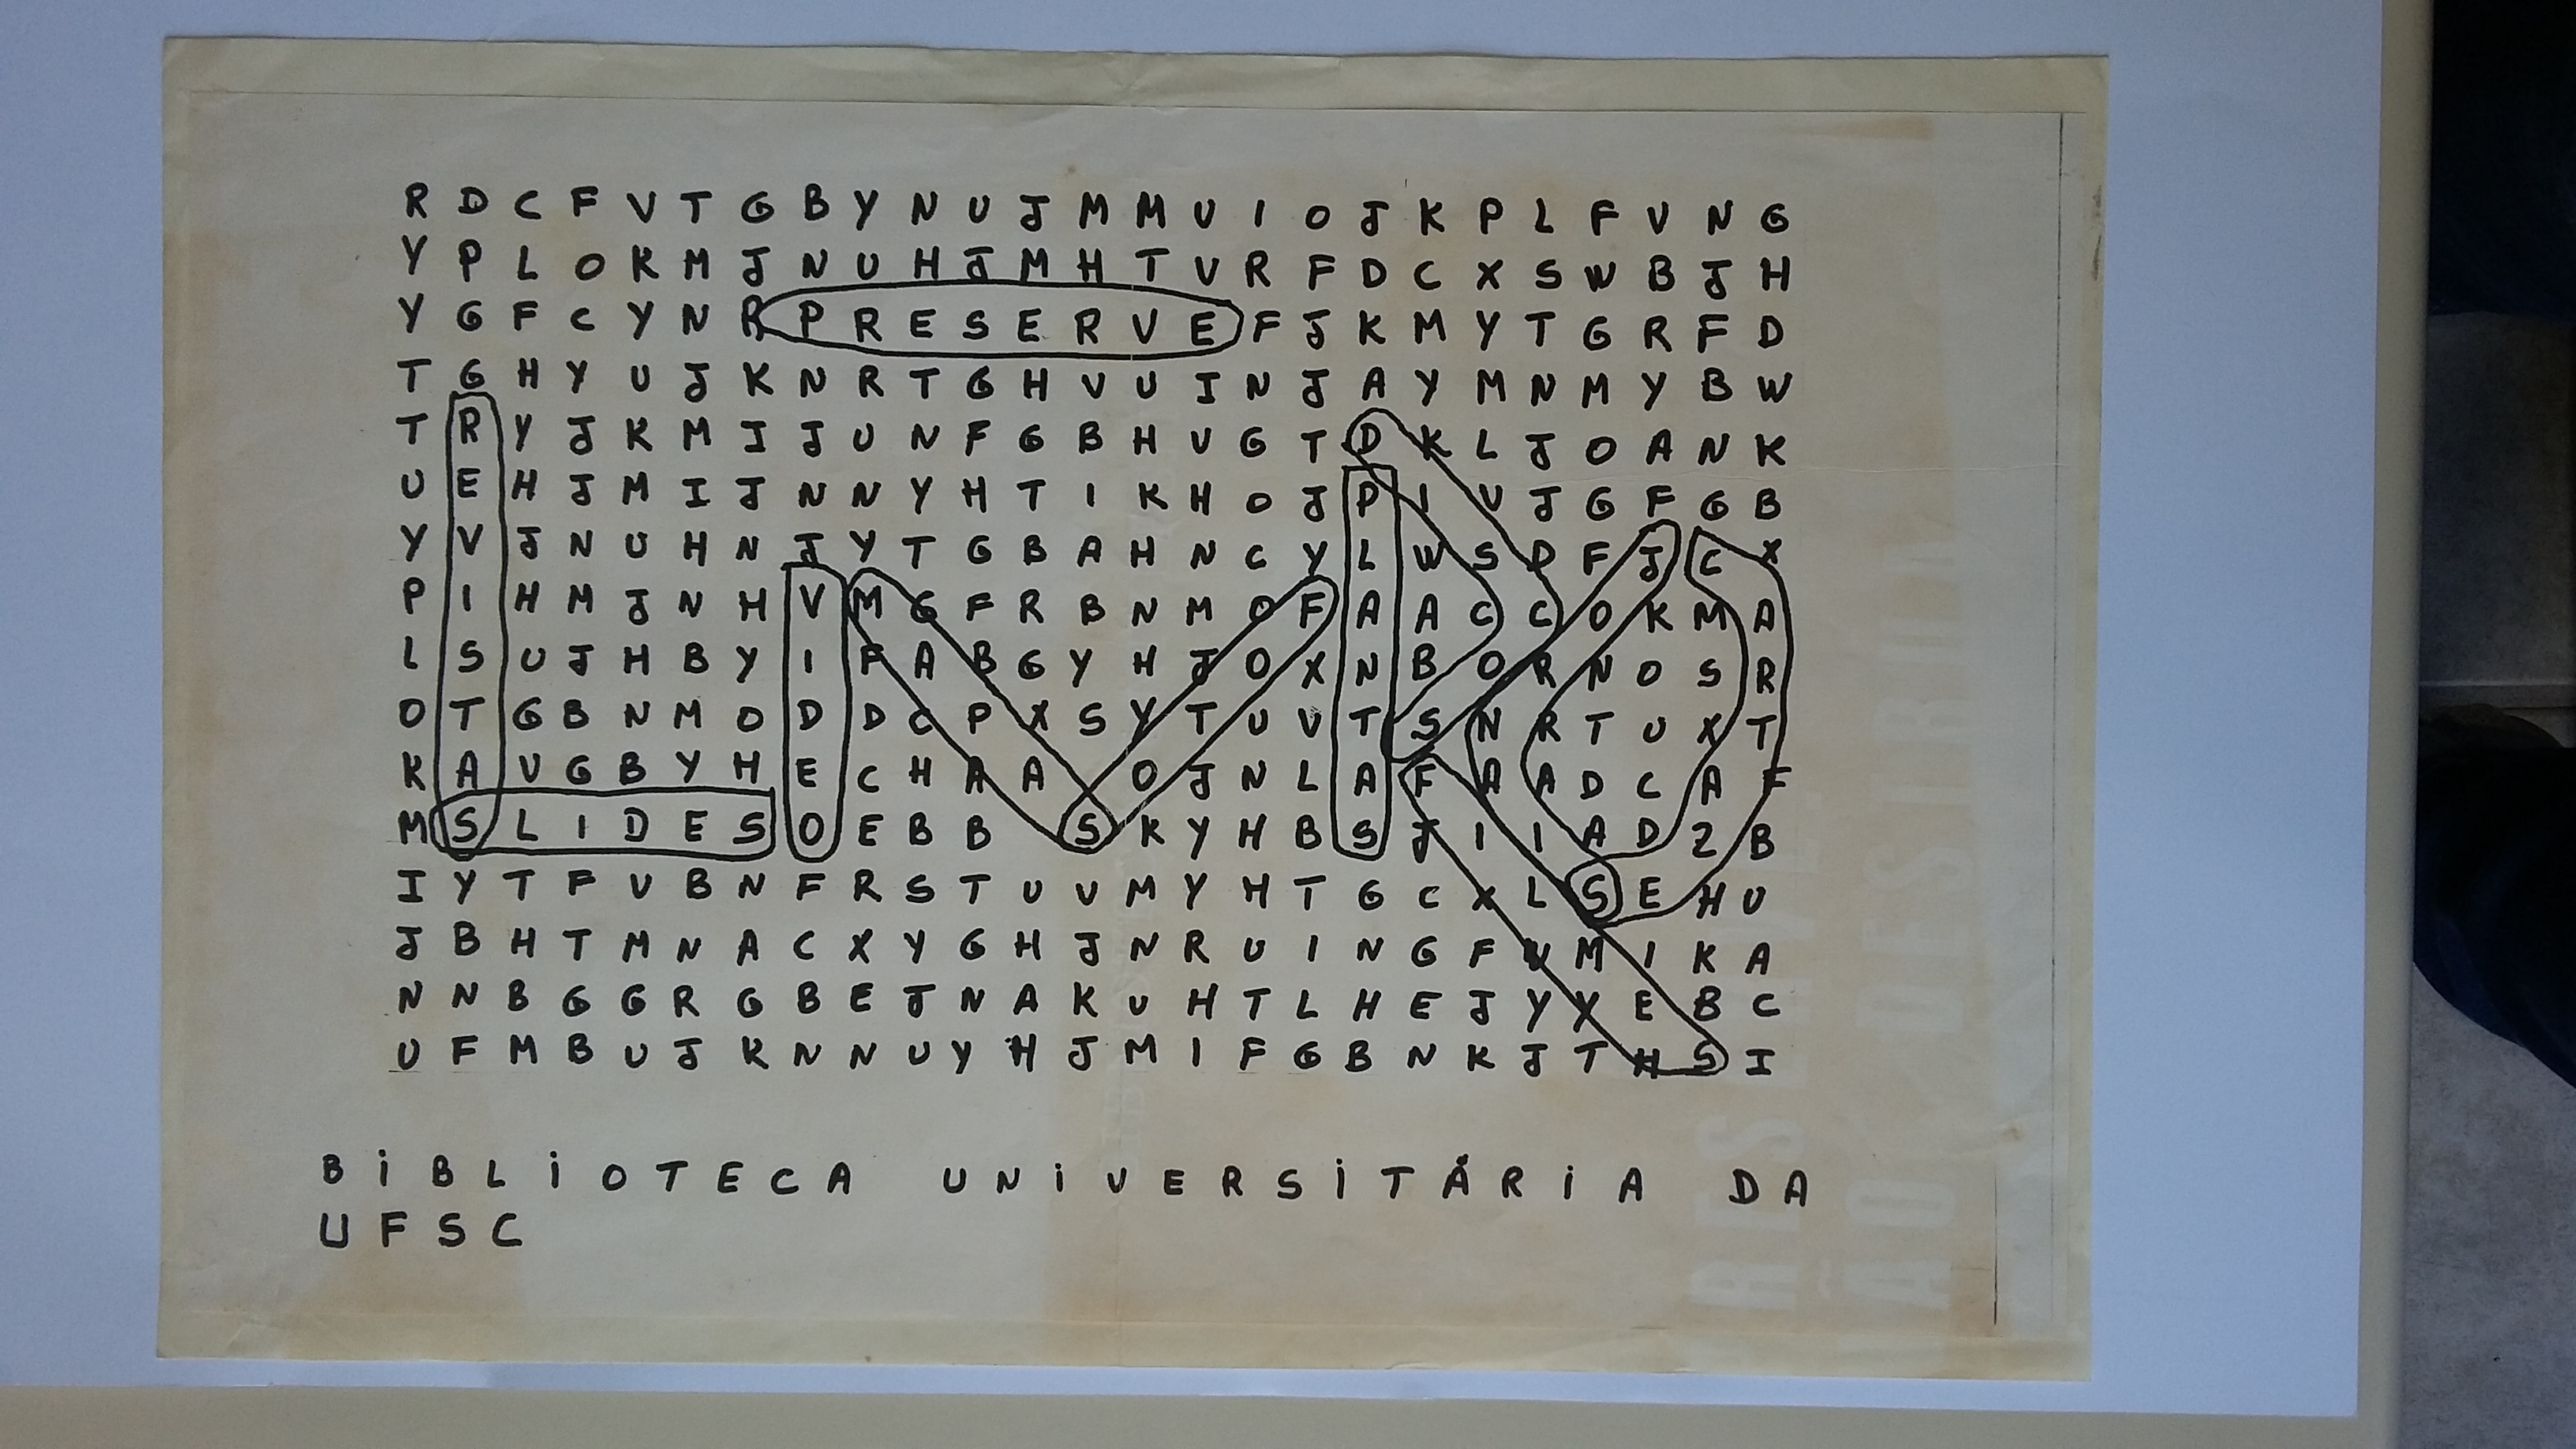 R D C F V T G B Y N U J M M U I O J K P L F V N G
Y P L O K M J N U H J M H T V R F D C X S W B J H
Y G F C Y N R P R E S E R V E F J K M Y T G R F D
T G H Y U J K N R T G H V U I N J A Y M N M Y B W
T R Y J K M I J U N F G B H U G T D K L J O A N K
U E H J M I J N N Y H T I K H O J P I U J G F G B
Y V J N U H N J Y T G B A H N C Y L W S D F J C X
P I H M J N H V M G F R B N M O F A A C C O K M A
L S U J H B Y I F A B G Y H J O X N B O R N O S R
O T G B N M O D D C P X S Y T U V T S N R T U X T
K A U G B Y H E C H A A O J N L A F A A D C A F
M S L I D E S O E B B S K Y H B S J I I A D Z B
I Y T F V B N F R S T U V M Y H T G C X L S E H U
J B H T M N A C X Y G H J N R U I N G F U M I K A
N N B G G R G B E J N A K U H T L H E J Y Y E B C
U F M B U J K N N U Y H J M I F G B N K J T H S I
BIBLIOTECA UNIVERSITÁRIA DA
UFSC